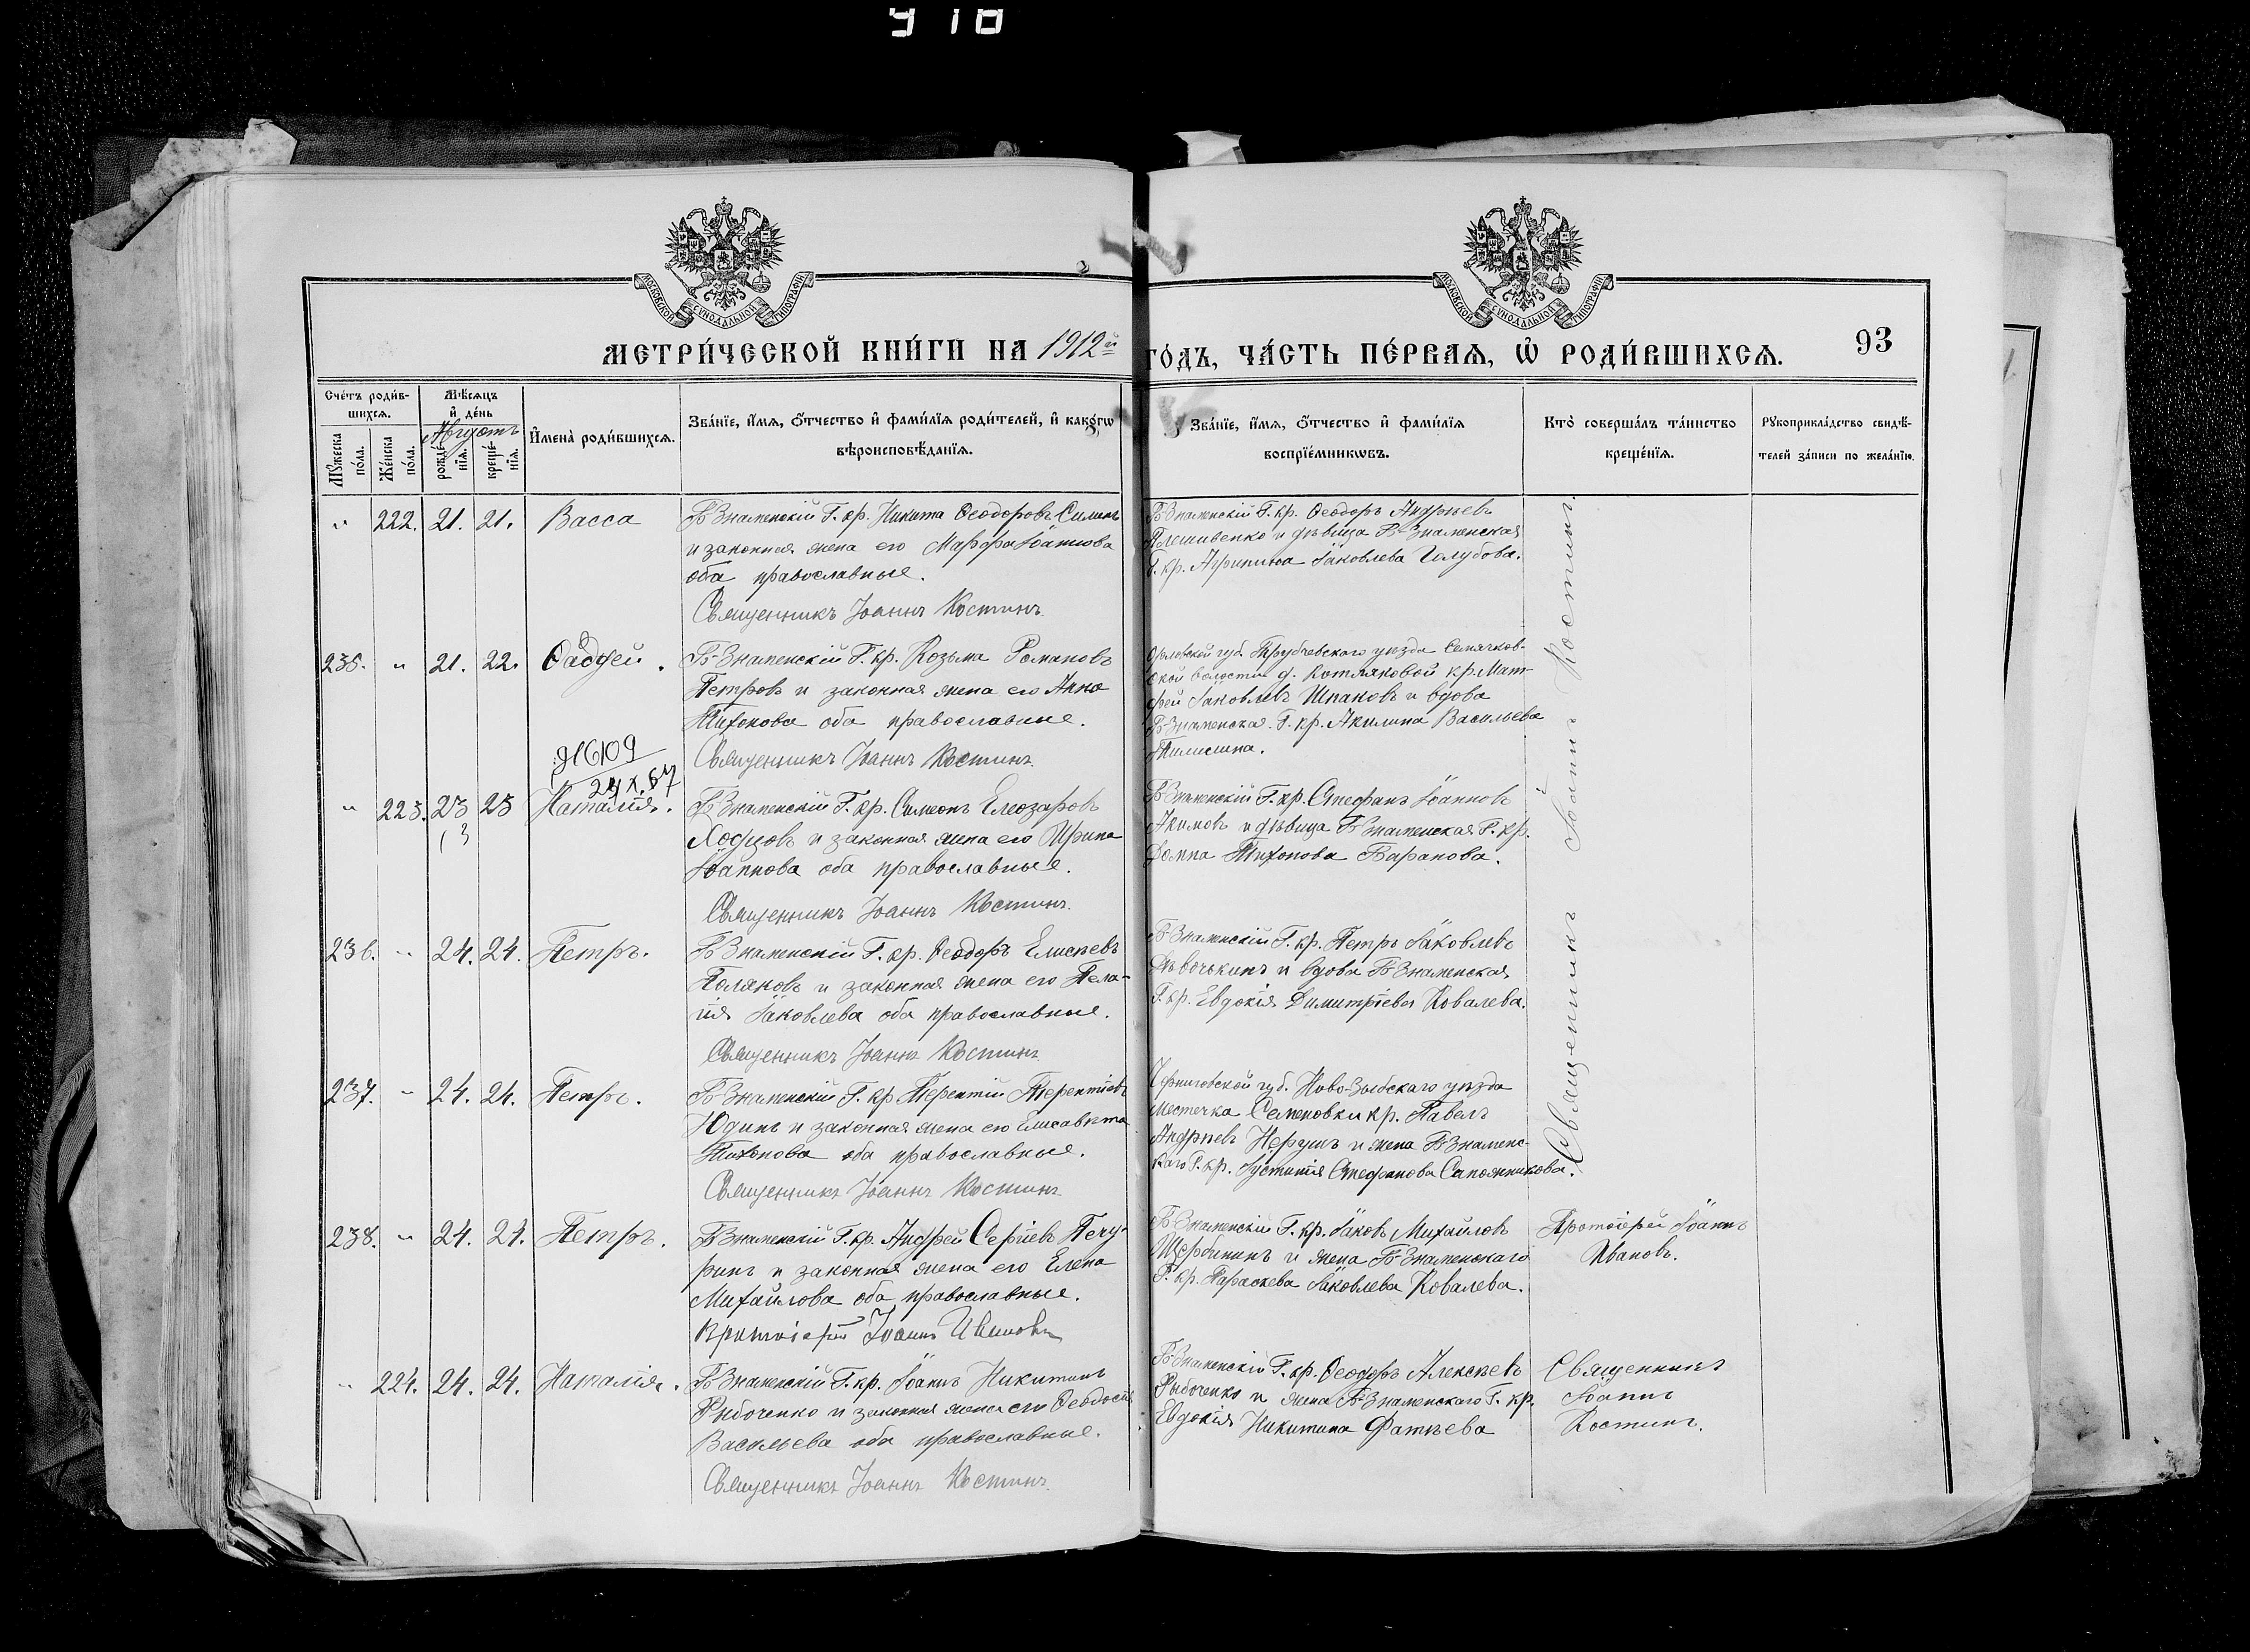 МОСКОВСКОЙ СѴНОДАЛЬНОЙ ТИПОГРАФІИ
МОСКОВСКОЙ СѴНОДАЛЬНОЙ ТИПОГРАФІИ
МЕТРИ́ЧЕСКОЙ КНИ́ГИ НА 1912й
ГО́ДЪ, ЧА́СТЬ ПЕ́РВАѦ, Ѽ РОДИ́ВШИХСѦ.
93
Сче́тъ роди́в-
шихсѧ.
Мꙋ́жеска по́ла.
Же́нска по́ла.
Мѣ́сѧцъ
и҆ де́нь
Августъ
рожде́-
нїѧ.
креще́-
нїѧ.
И҆мена̀ роди́вшихсѧ.
Зва́нїе, и҆́мѧ, ѻ҆́тчество и҆ фами́лїѧ роди́телей, и҆ како́гѡ
вѣроисповѣ́данїѧ.
Зва́нїе, и҆́мѧ, ѻ҆́тчество и҆ фами́лїѧ
воспрїе́мникѡвъ.
Кто̀ соверша́лъ та́инство
креще́нїѧ.
Рꙋкоприкла́дство свидѣ́-
телей за́писи по жела́нїю.
" 222. 21. 21. Васса
Б-Знаменскій Г. кр. Никита Ѳеодоровъ Силинъ
и законная жена его Марфа Іоаннова
оба православные.
Священникъ Іоаннъ Костинъ.
Б-Знаменскій Г. кр. Ѳеодоръ Андреевъ
Плешивенко и дѣвица Б-Знаменская
Г. кр. Агрипина Іаковлева Голубова.
235. " 21. 22. Ѳаддей.
Б-Знаменскій Г. кр. Козьма Романовъ
Петровъ и законная жена его Анна
Тихонова оба православные.
Священникъ Іоаннъ Костинъ.
Орловской губ. Трубчевскаго уѣзда Семячков-
ской волости д. Котляковой кр. Мат-
фей Іаковлевъ Шпаковъ и вдова
Б-Знаменская Г. кр. Акилина Васильева
" 223. 23 23 Наталія.
Б-Знаменскій Г. кр. Симеонъ Елеозаровъ
и законная жена его Ирина
Іоаннова оба православные.
Священникъ Іоаннъ Костинъ.
Б-Знаменскій Г. кр. Стефанъ Іоанновъ
Акимовъ и дѣвица Б-Знаменская Г. кр.
Домна Тихонова Баранова.
236. " 24. 24. Петръ.
Б-Знаменскій Г. кр. Ѳеодоръ Елисѣевъ
Поляковъ и законная жена его Пела-
гія Іаковлева оба православные.
Священникъ Іоаннъ Костинъ
Б-Знаменскій Г. кр. Петръ Іаковлевъ
Дѣвочькинъ и вдова Б-Знаменская
Г. кр. Евдокія Димитріева Ковалева.
237. " 24. 24. Петръ.
Б-Знаменскій Г. кр Терентій Терентіевъ
Юдинъ и законная жена его Елисавета
Тихонова оба православные.
Священникъ Іоаннъ Костинъ
Черниговской губ. Ново-Зыбскаго уѣзда
местечка Семеновки кр. Павелъ
Андреевъ и жена Б-Знаменс-
каго Г. кр. Іустинія Стефанова Сапожникова.
Священникъ Іоаннъ Костинъ.
238. " 24. 24. Петръ.
Б-Знаменскій Г. кр. Андрей Сергіевъ Печу-
ринъ и законная жена его Елена
Михайлова оба православные.
Протоіерей Іоаннъ Ивановъ
Б-Знаменскій Г. кр. Іаковъ Михайловъ
Щербининъ и жена Б-Знаменскаго
Г. кр. Параскева Іаковлева Ковалева.
Протоіерей Іоаннъ
Ивановъ.
" 224. 24. 24. Наталія.
Б-Знаменскій Г. кр. Іоаннъ Никитинъ
Рыбоченко и законная жена его Ѳеодосія
Васильева оба православные.
Священникъ Іоаннъ Костинъ.
Б-Знаменскій Г. кр. Ѳеодоръ Алексѣевъ
Рыбоченко и жена Б-Знаменскаго Г. кр.
Евдокія Никитина Фатѣева
Священникъ
Іоаннъ
Костинъ.